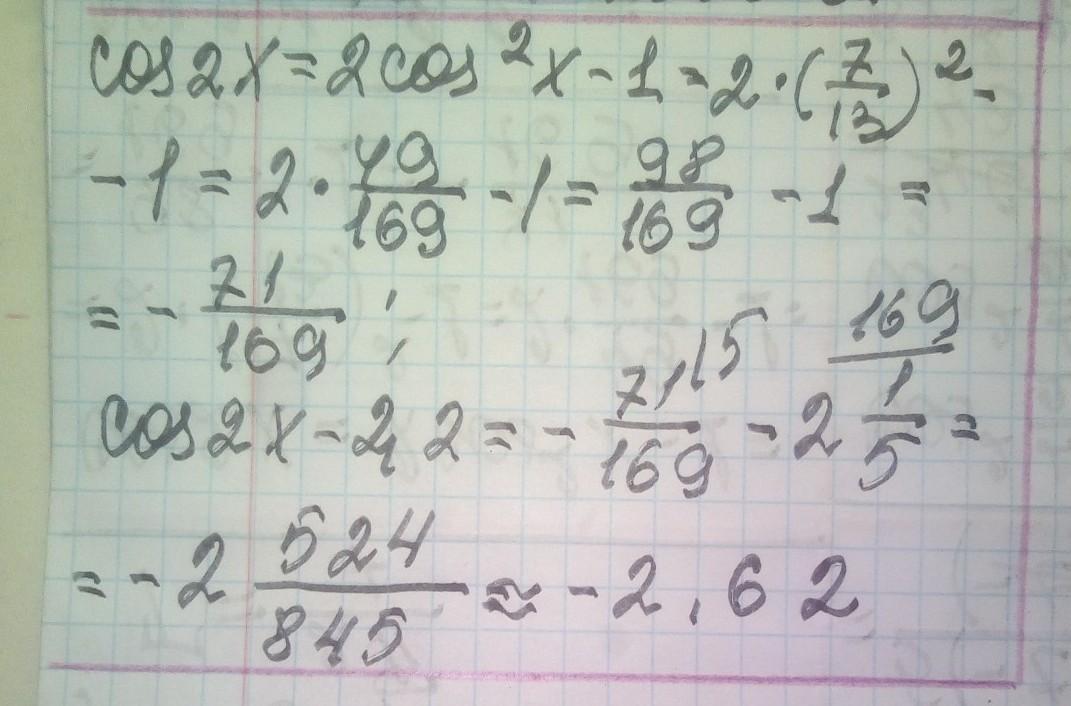 cos2x=2cos²x-1=2·(7/13)²-
-1=2·49/169-1=98/169-1=
=-71/169;
cos2x-2,2=-71/169 |5 -2 1/5 | 169=
=-2 524/845≈-2,62